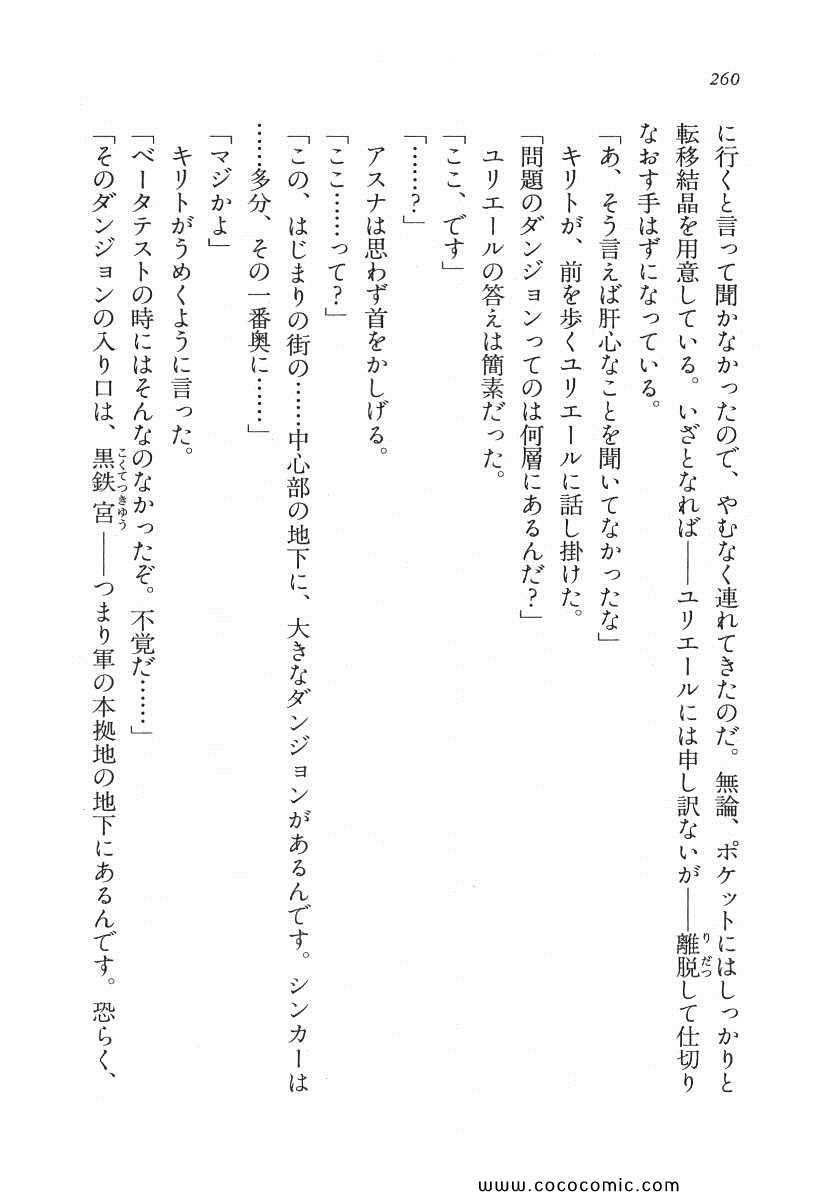 260
に行くと言って聞かなかったので、やむなく連れてきたのだ。無論、ポケットにはしっかりと
転移結晶を用意している。いざとなれば――ユリエールには申し訳ないが――離脱して仕切り
なおす手はずになっている。
「あ、そう言えば肝心なことを聞いてなかったな」
キリトが、前を歩くユリエールに話し掛けた。
「問題のダンジョンってのは何層にあるんだ？」
ユリエールの答えは簡素だった。
「ここ、です」
「……？」
アスナは思わず首をかしげる。
「ここ……って？」
「この、はじまりの街の……中心部の地下に、大きなダンジョンがあるんです。シンカーは
……多分、その一番奥に……」
「マジかよ」
キリトがうめくように言った。
「ベータテストの時にはそんなのなかったぞ。不覚だ……」
「そのダンジョンの入り口は、黒鉄宮――つまり軍の本拠地の地下にあるんです。恐らく、
りだつ
こくてつきゅう
www.cococomic.com